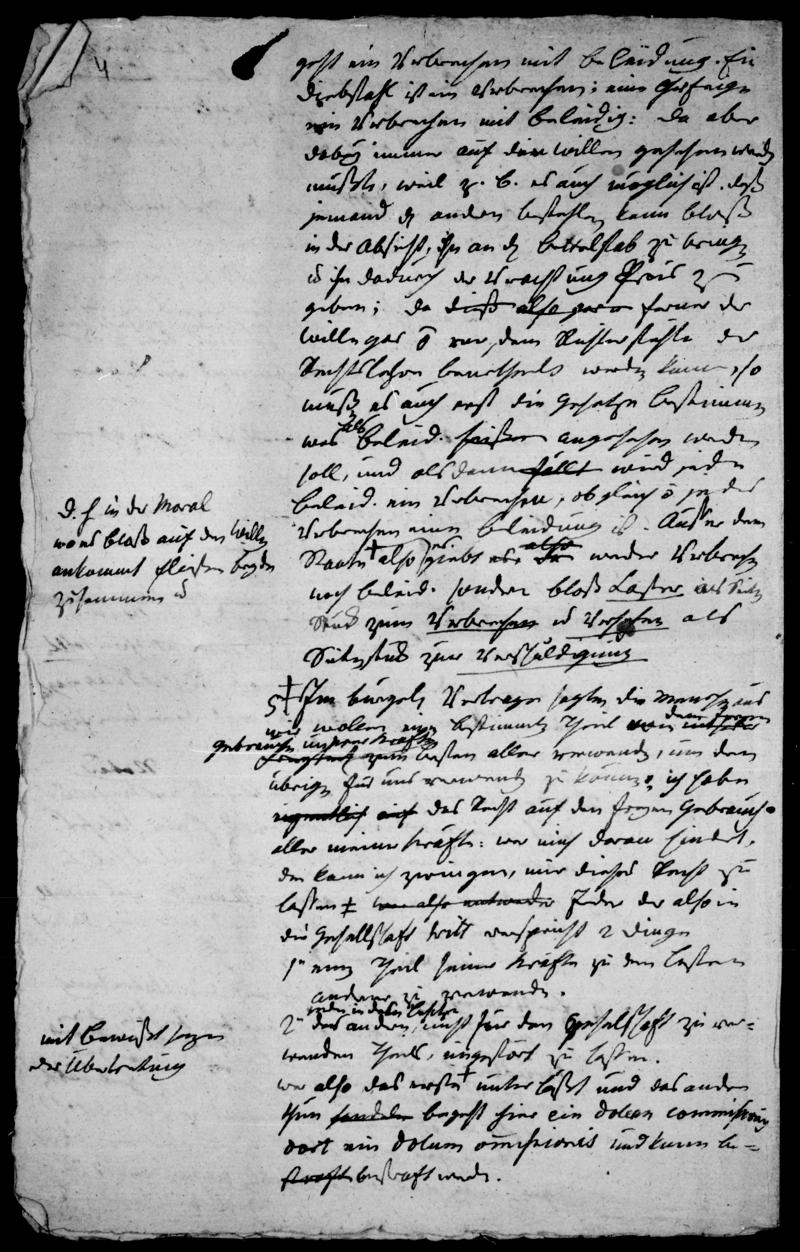 4
geht ein Verbrechen mit Beleidung. Ein
Diebstahl ist ein Verbrechen; eine
ein Verbrechen mit Beleidig: da aber
dabey immer auf den Willen gesehen werden
müßte, weil z. B. es auch möglich ist, daß
jemand d andern bestehlen kann bloß
in der Absicht, ihn an d Bettelstab zu bringen
u ihn dadurch der Verachtung Preis zu
geben; da dieß also ferner der
Wille gar vor dem Richterstuhle der
Rechtslehre beurtheilt werden kann, so
muß es auch erst die Gesetze bestimmen
was als Beleid. angesehen werden
soll, und alsdann fällt wird jede
Beleid. ein Verbrechen, obgleich jedes
Verbrechen eine Beleidung ist. Außer dem
Staate also giebt es also weder Verbrechen
noch Beleid. sondern bloß Laster als
zum Verbrechen u Versehen als
zur Verschuldigung
d. h in der Moral
wo es bloß auf den Willen
ankommt fließen beyde
zusammen
Im bürgerl. Vertrage sagten die Menschen
wir wollen einen bestimmten Theil
Gebrauch unserer Kräfte
zum besten aller verwenden, um den
übrigen für uns verwenden zu können, ich habe
eigentlich auf das Recht auf den freyen Gebrauch
aller meiner Kräfte: wer mich daran hindert,
den kann ich zwingen, mir dieses Recht zu
lassen wer also entweder Jeder der also in
die Gesellschaft tritt verspricht 2 Dinge
1" einen Theil seiner Kräfte zu dem besten
anderer zu verwenden.
2" den andern, nicht für den Gesellschaft zu ver=
wenden Theil, ungestört zu lassen.
wer also das erste unterläßt und das andere
thun begeht hier ein dolum commissionis
dort ein dolum omissionis und kann be=
straft bestraft werden.
mit Bewußtseyn
der Übertretung